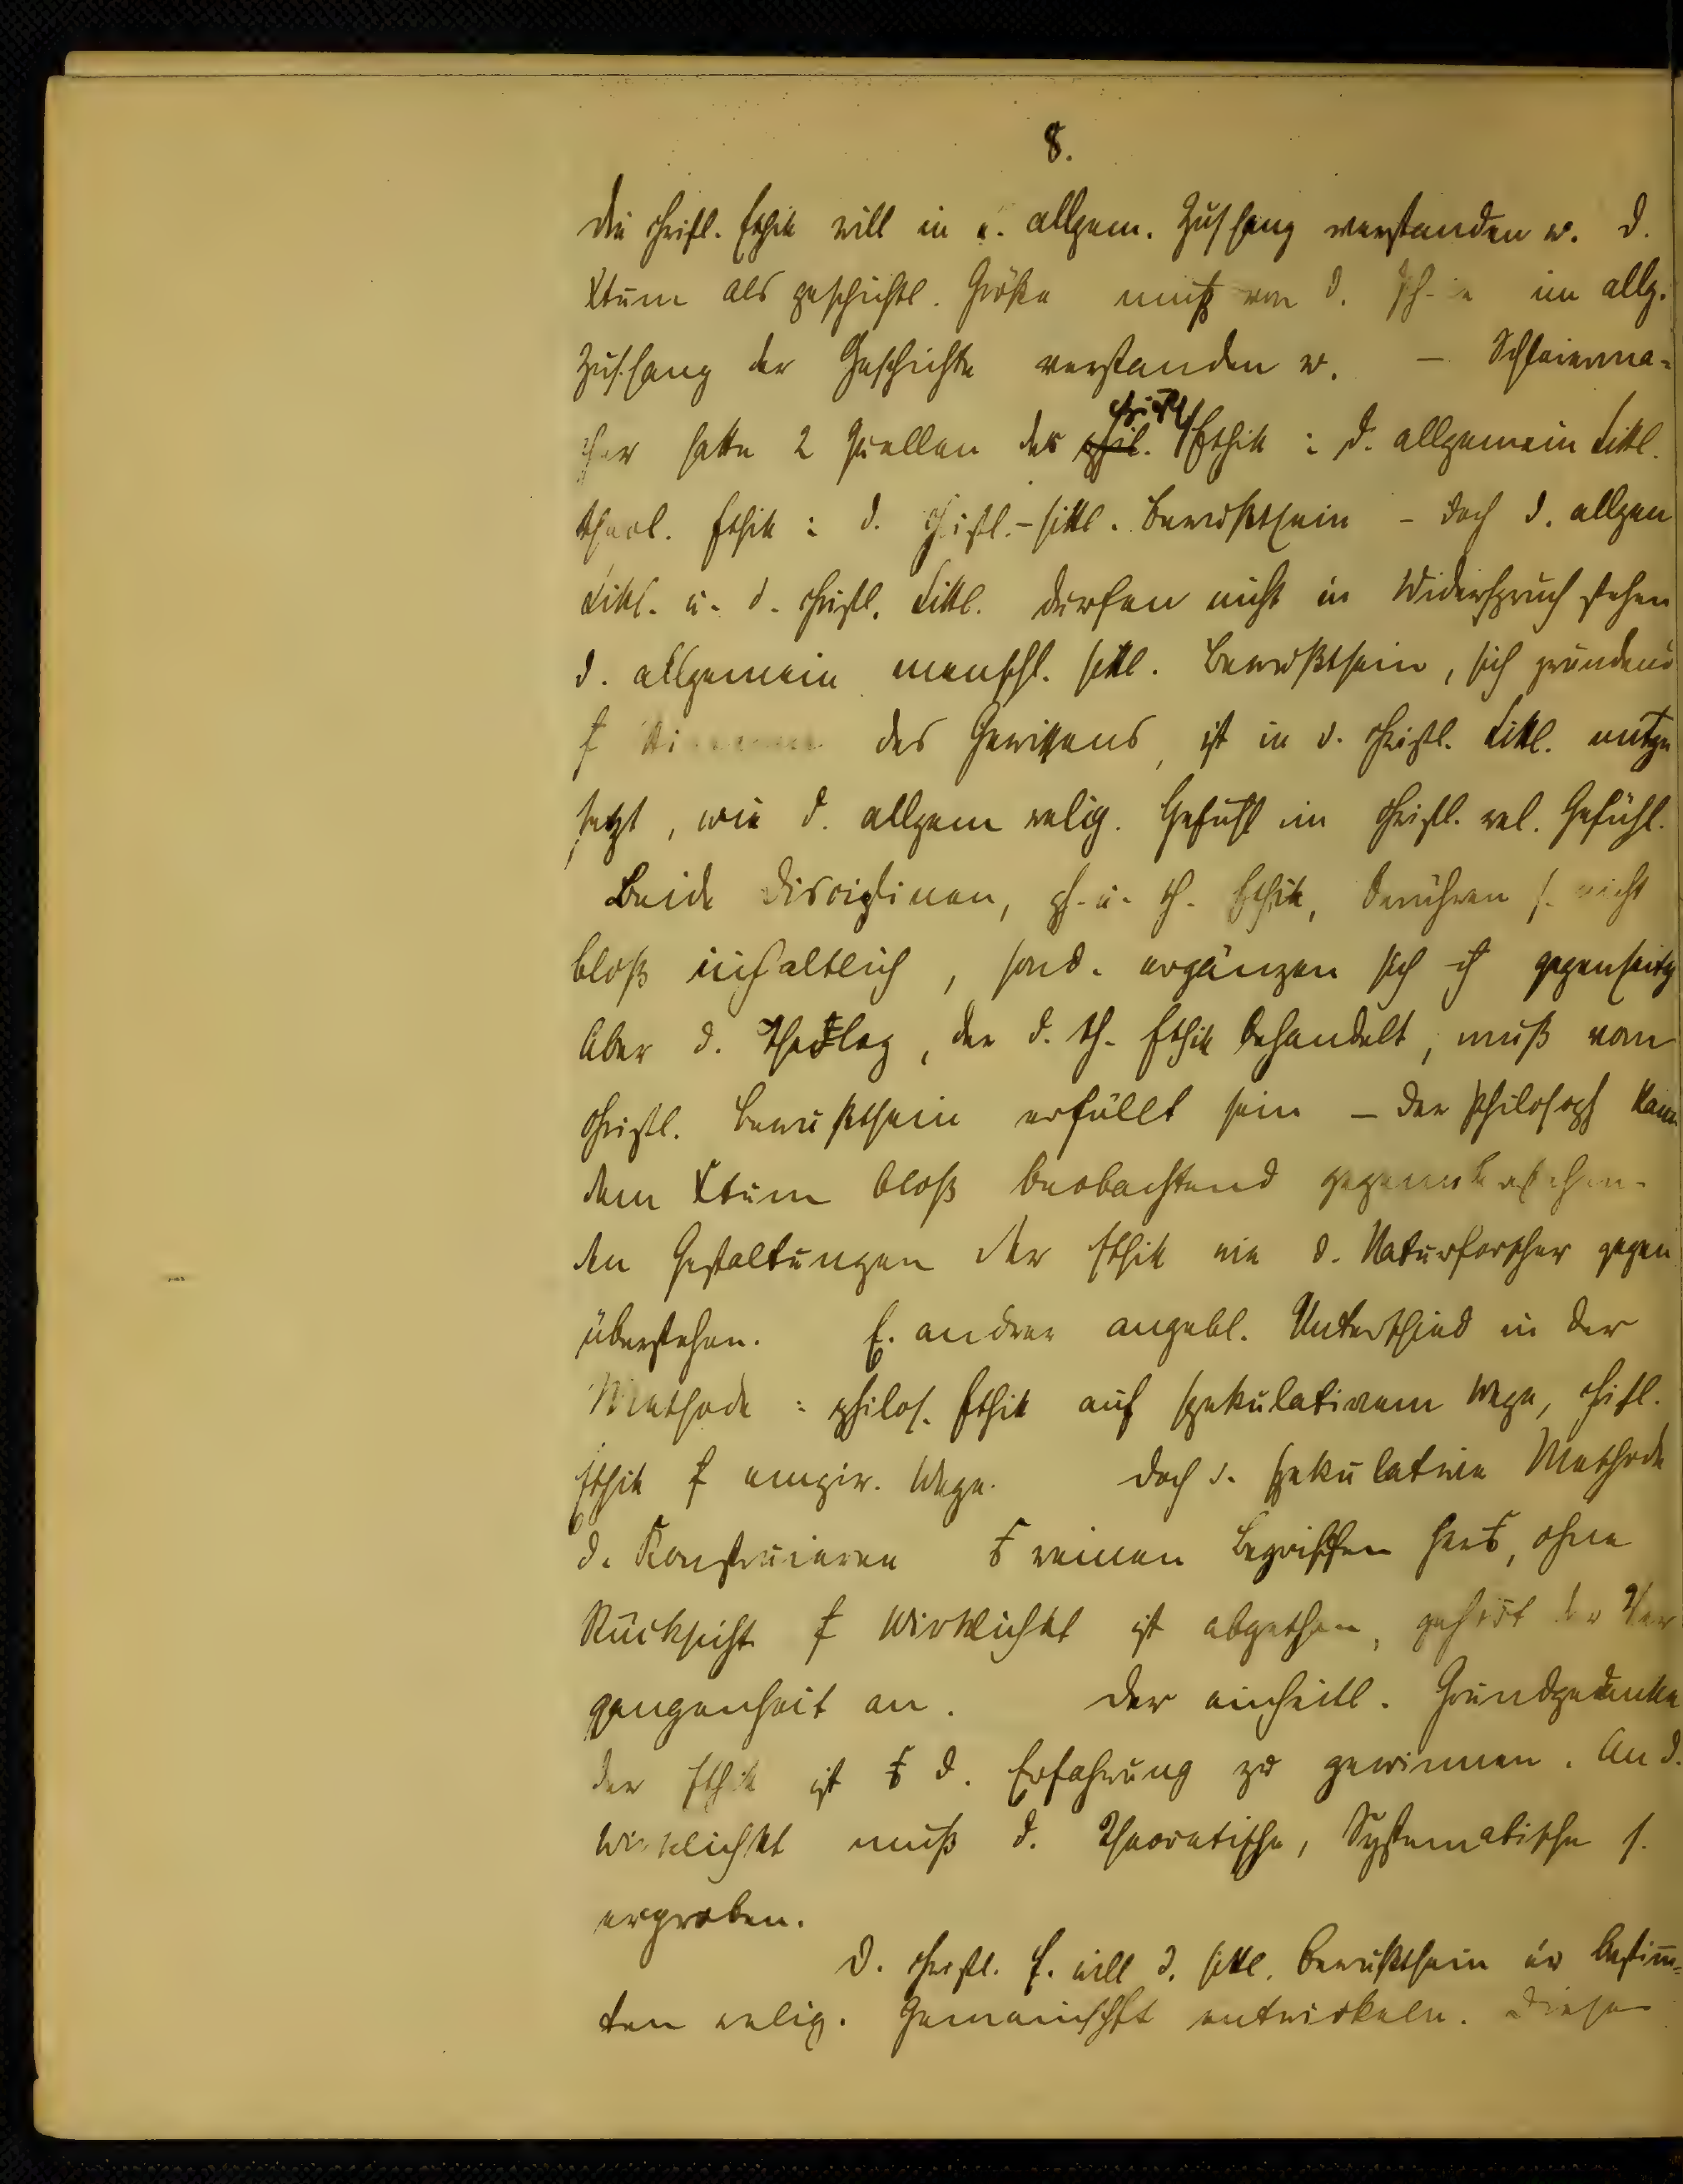 8.
Die christl. Ethik will in e. allgem. Zus.hang verstanden w. D.
Xtum als geschichtl. Größe muß von d. im allg.
Zus.hang der Geschichte verstanden w. — Schleierma-
cher hatte 2 Quellen der phil. christl. Ethik: d. allgemein Sittl.
theol. Ethik: d. christl.-sittl. Bewußtsein - doch d. allgem
Sittl. u. d. christl. Sittl. dürfen nicht in Widerspruch stehen
d. allgemein menschl. sittl. Bewußtsein, sich gründend
f des Gewissens, ist in d. christl. Sittl. mitge
setzt, wie d. allgem relig. Gefühl im christl. rel. Gefühl.
Beide Disciplinen, ph. u. th. Ethik, berühren s. nicht
bloß inhaltlich, sond. ergänzen sich gegenseitg
Aber d. Theolog, der d. th. Ethik behandelt, muß vom
christl. Bewußtsein erfüllt sein — der Philosoph kann
dem Xtum bloß beobachtend gegenüberstehen.
den Gestaltungen der Ethik wie d. Naturforscher gegen
überstehen. E. andrer angebl. Unterschied in der
Methode: philos. Ethik auf spekulativem Wege, christl.
Ethik f empir. Wege. Doch d. spekulative Methode
d. Konstruieren reinen Begriffen her, ohne
Rücksicht f Wirklichkt ist abgethan, gehört der Ver
gangenheit an. Der einheitl. Grundgedanke
der Ethik ist d. Erfahrung zu gewinnen. An d.
Wirklichkt muß d. Theoretische, Systematische s.
erproben.
D. christl. E. will d. sittl. Bewußtsein er bestim̄-
ten relig. Gemeinschft entwickeln. Diese